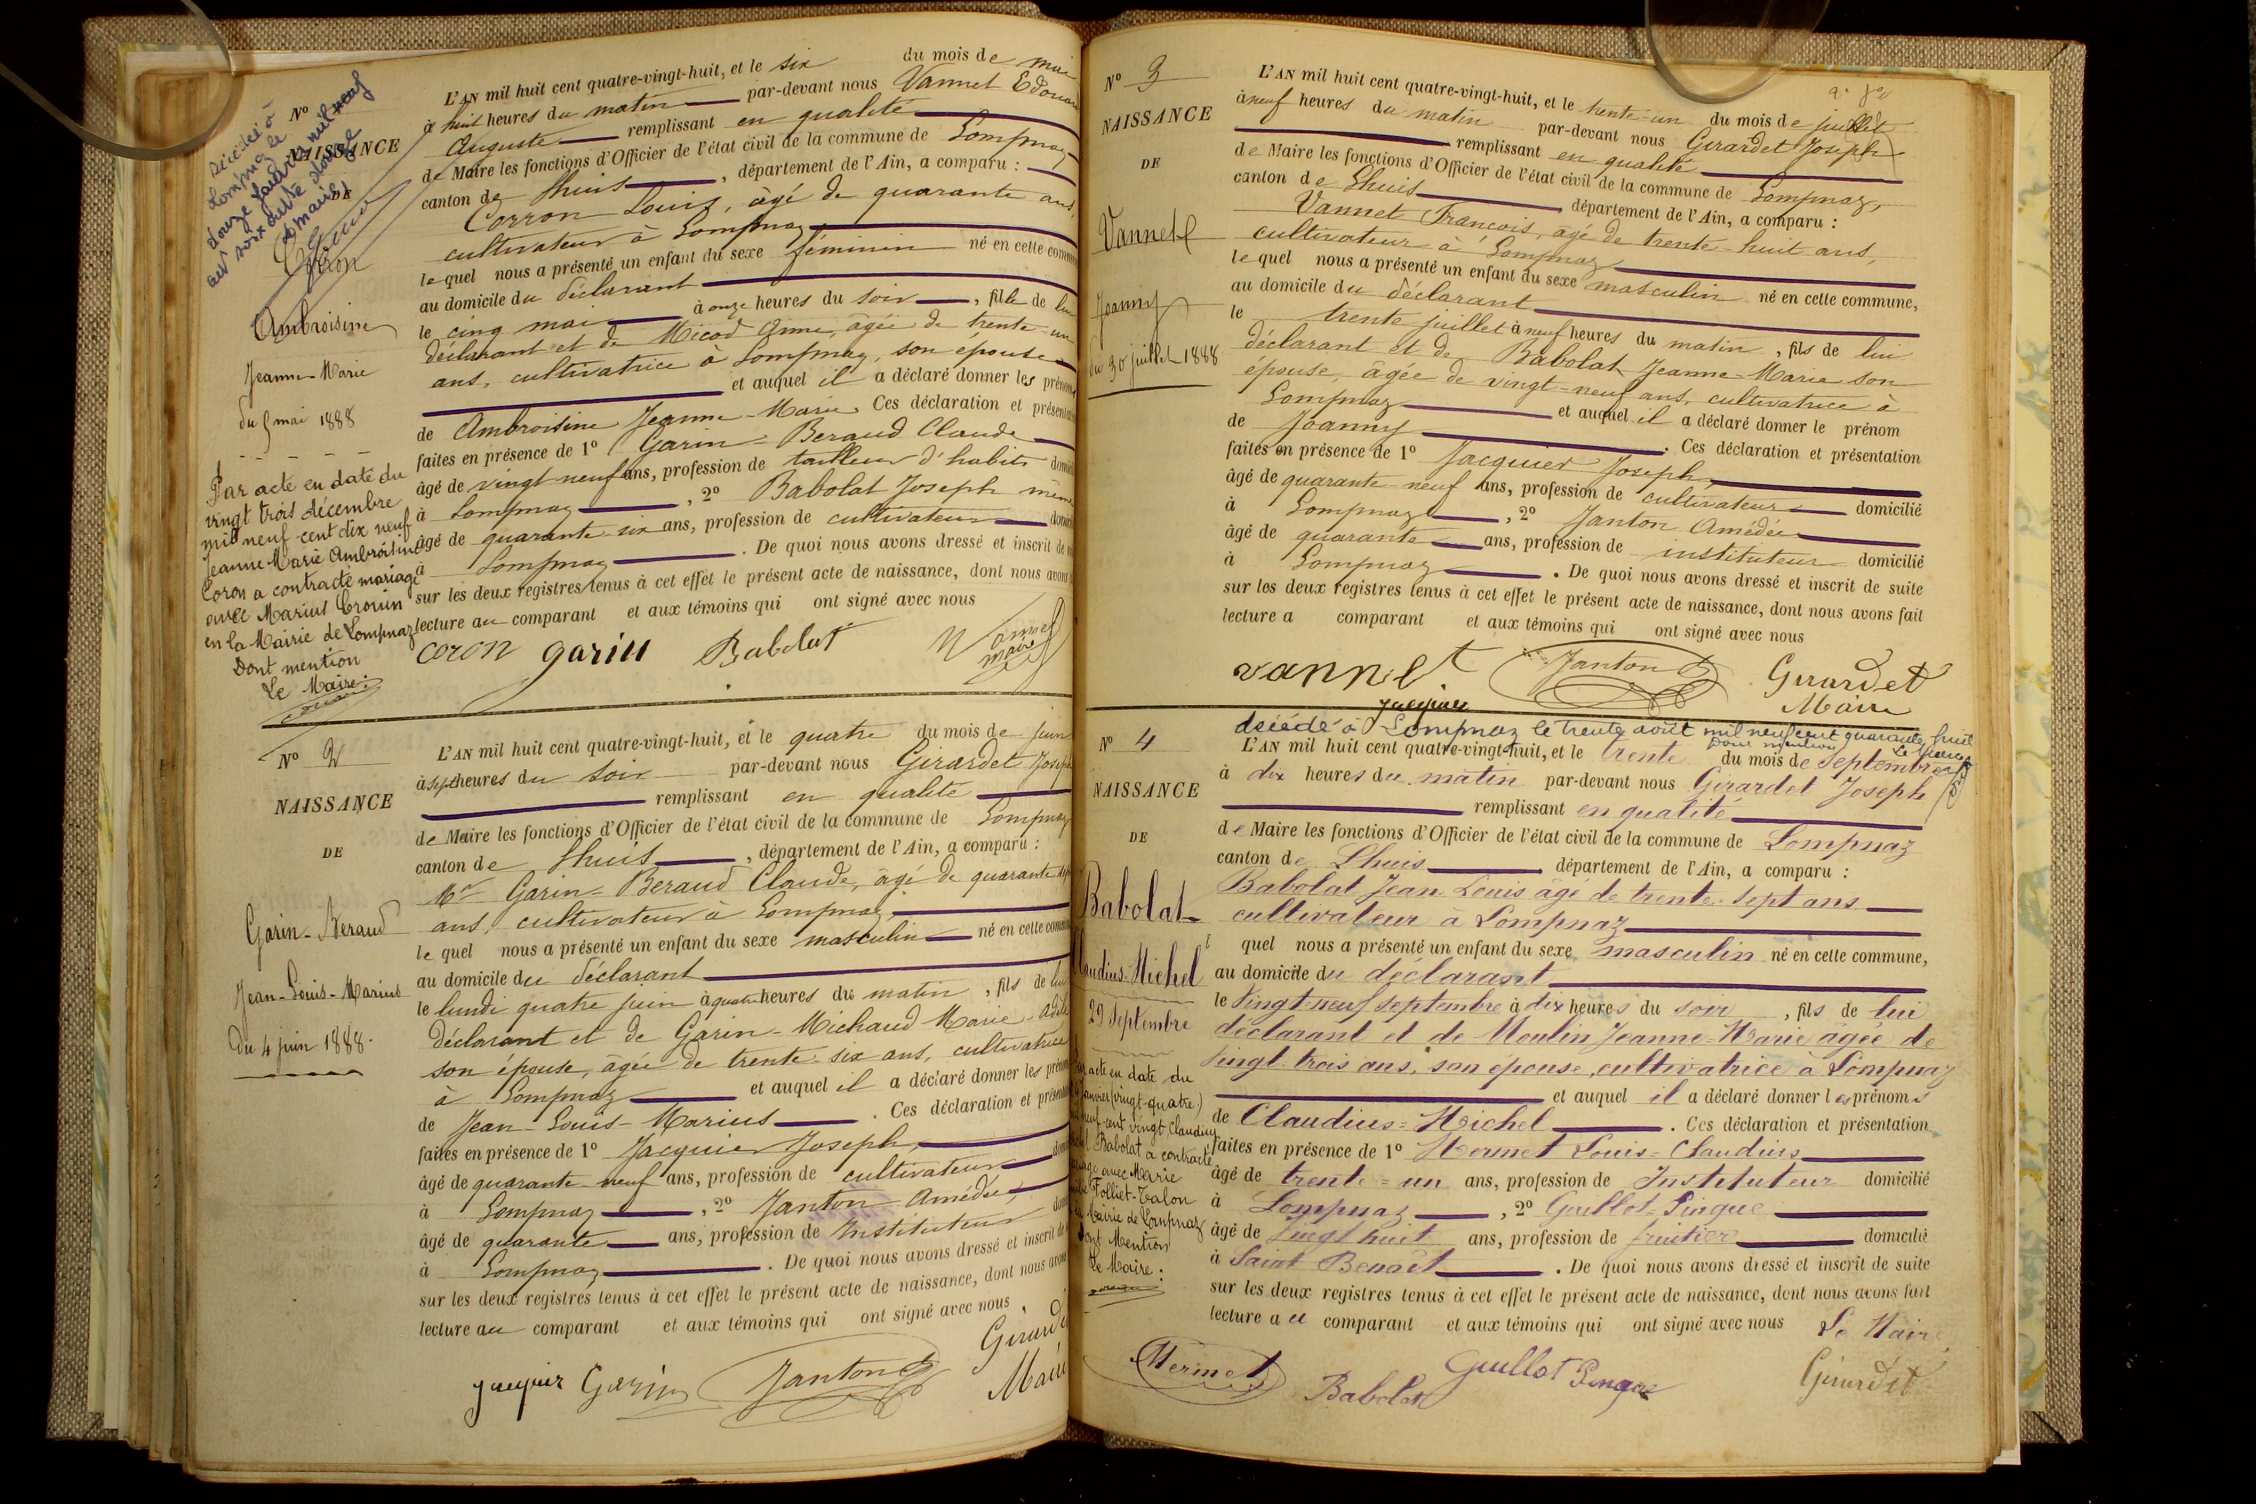 Nº
NAISSANCE
DE
Coron
Ambroisine
Jeanne-Marie
du 5 mai 1888
Par acte en date du
vingt trois décembre
mil neuf cent dix neuf
Jeanne Marie Ambroisine
Coron a contracté mariage
avec Marius
en la Mairie de Lompnaz
Dont mention
Le Maire:
L'AN mil huit cent quatre-vingt-huit, et le six du mois de mai
à huit heures du matin par-devant nous Vannet Edouard
Auguste remplissant en qualité
de Maire les fonctions d'Officier de l'état civil de la commune de Lompnaz
canton de Lhuis, département de l'Ain, a comparu :
Corron Louis, âgé de quarante ans,
cultivateur à Lompnaz
le quel nous a présenté un enfant du sexe féminin né en cette commune
au domicile du déclarant
le cinq mai à onze heures du soir, fille de lui
déclarant et de Micod Aimé, âgée de trente-un
ans, cultivatrice à Lompnaz, son épouse
et auquel il a déclaré donner les prénoms
de Ambroisine Jeanne-Marie. Ces déclaration et présentation
faites en présence de 1º Garin-Beraud Claude
âgé de vingt-neuf ans, profession de tailleur d'habits
à Lompnaz, 2º Babolat Joseph
âgé de quarante-six ans, profession de cultivateur
à Lompnaz. De quoi nous avons dressé et inscrit de
sur les deux registres tenus à cet effet le présent acte de naissance, dont nous avons
lecture au comparant et aux témoins qui ont signé avec nous
coron garin Babolat Vannet
maire
Nº 2
NAISSANCE
DE
Garin-Beraud
Jean-Louis-Marius
Du 4 juin 1888.
L'AN mil huit cent quatre-vingt-huit, et le quatre du mois de juin
à sept heures du soir par-devant nous Girardet Joseph
remplissant en qualité
de Maire les fonctions d'Officier de l'état civil de la commune de Lompnaz
canton de Lhuis, département de l'Ain, a comparu :
Mr Garin-Beraud Claude, âgé de quarante-sept
ans, cultivateur à Lompnaz,
le quel nous a présenté un enfant du sexe masculin né en cette commune
au domicile du déclarant
le lundi quatre juin à quatre heures du matin, fils de lui
déclarant et de Garin-Michaud Marie-Adèle
son épouse, âgée de trente-six ans, cultivatrice
à Lompnaz et auquel il a déclaré donner les prénoms
de Jean-Louis-Marius. Ces déclaration et présentation
faites en présence de 1º Jacquier Joseph,
âgé de quarante-neuf ans, profession de cultivateur
à Lompnaz, 2º Janton Amédée,
âgé de quarante ans, profession de Instituteur
à Lompnaz. De quoi nous avons dressé et inscrit de
sur les deux registres tenus à cet effet le présent acte de naissance, dont nous avons
lecture au comparant et aux témoins qui ont signé avec nous,
jacquier Garin Janton Girardet
Maire
Nº 3
NAISSANCE
DE
Vannet
Joanny
Du 30 juillet 1888
L'AN mil huit cent quatre-vingt-huit, et le trente-un du mois de juillet
à neuf heures du matin par-devant nous Girardet Joseph
remplissant en qualité
de Maire les fonctions d'Officier de l'état civil de la commune de Lompnaz,
canton de Lhuis département de l'Ain, a comparu :
Vannet François, âgé de trente-huit ans,
cultivateur à Lompnaz
le quel nous a présenté un enfant du sexe masculin né en cette commune,
au domicile du déclarant
le trente juillet à neuf heures du matin, fils de lui
déclarant et de Babolat Jeanne-Marie son
épouse, âgée de vingt-neuf ans, cultivatrice à
Lompnaz et auquel il a déclaré donner le prénom
de Joanny. Ces déclaration et présentation
faites en présence de 1º Jacquier Joseph,
âgé de quarante-neuf ans, profession de cultivateur domicilié
à Lompnaz, 2º Janton Amédée
âgé de quarante ans, profession de instituteur domicilié
à Lompnaz. De quoi nous avons dressé et inscrit de suite
sur les deux registres tenus à cet effet le présent acte de naissance, dont nous avons fait
lecture a comparant et aux témoins qui ont signé avec nous
vannet Janton Girardet
jacquier Maire
décédé à Lompnaz le trente août mil neuf cent quarante huit
pour mention Le Maire
Nº 4
NAISSANCE
DE
Babolat
Claudius-Michel
29 Septembre
acte en date du
janvier (vingt-quatre)
neuf cent vingt Claudius
Babolat a contracté
avec Marie
Folliet-Talon
Mairie de Lompnaz
Dont Mention
Le Maire:
L'AN mil huit cent quatre-vingt-huit, et le trente du mois de septembre
à dix heures du matin par-devant nous Girardet Joseph
remplissant en qualité
de Maire les fonctions d'Officier de l'état civil de la commune de Lompnaz
canton de Lhuis département de l'Ain, a comparu :
Babolat Jean Louis âgé de trente-sept ans
cultivateur à Lompnaz
quel nous a présenté un enfant du sexe masculin né en cette commune,
au domicile du déclarant
le Vingt-neuf septembre à dix heures du soir, fils de lui
déclarant et de Moulin Jeanne-Marie âgée de
Vingt-trois ans, son épouse, cultivatrice à Lompnaz
et auquel il a déclaré donner les prénoms
de Claudius-Michel. Ces déclaration et présentation
faites en présence de 1º Mermet Louis-Claudius
âgé de trente-un ans, profession de Instituteur domicilié
à Lompnaz, 2º Guillot-Pingue
âgé de Vingt huit ans, profession de fruitier domicilié
à Saint Benoît. De quoi nous avons dressé et inscrit de suite
sur les deux registres tenus à cet effet le présent acte de naissance, dont nous avons fait
lecture au comparant et aux témoins qui ont signé avec nous Le Maire
Mermet Babolat Guillot Pingue Girardet